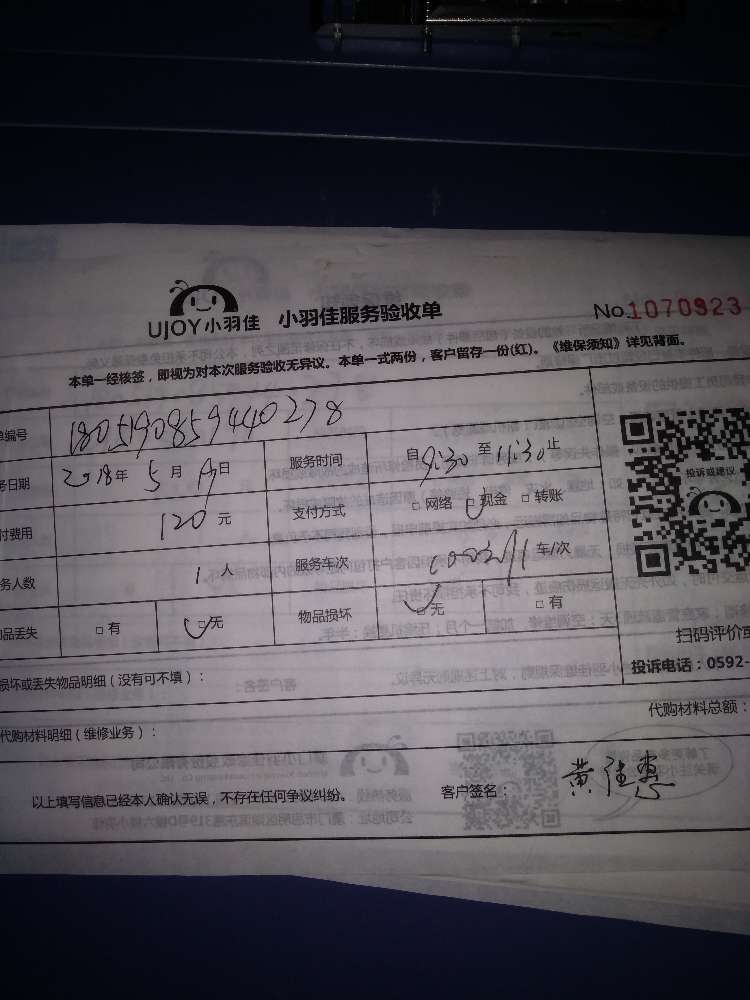 UJOY小羽佳 小羽佳服务验收单 No.1070923
本单一经核签，即视为对本次服务验收无异议。本单一式两份，客户留存一份(红)。《维保须知》详见背面。
单编号 1805190859440278
务日期 2018年 5月 19日 服务时间 自9:30至11:30止
付费用 120元 支付方式 □网络 □现金 □转账
务人数 1人 服务车次 车/次
品丢失 □有 □无 物品损坏 □无 □有
投诉或建议
扫码评价
投诉电话：0592-
损坏或丢失物品明细（没有可不填）：
代购材料明细（维修业务）： 代购材料总额：
以上填写信息已经本人确认无误，不存在任何争议纠纷。 客户签名： 黄佳惠